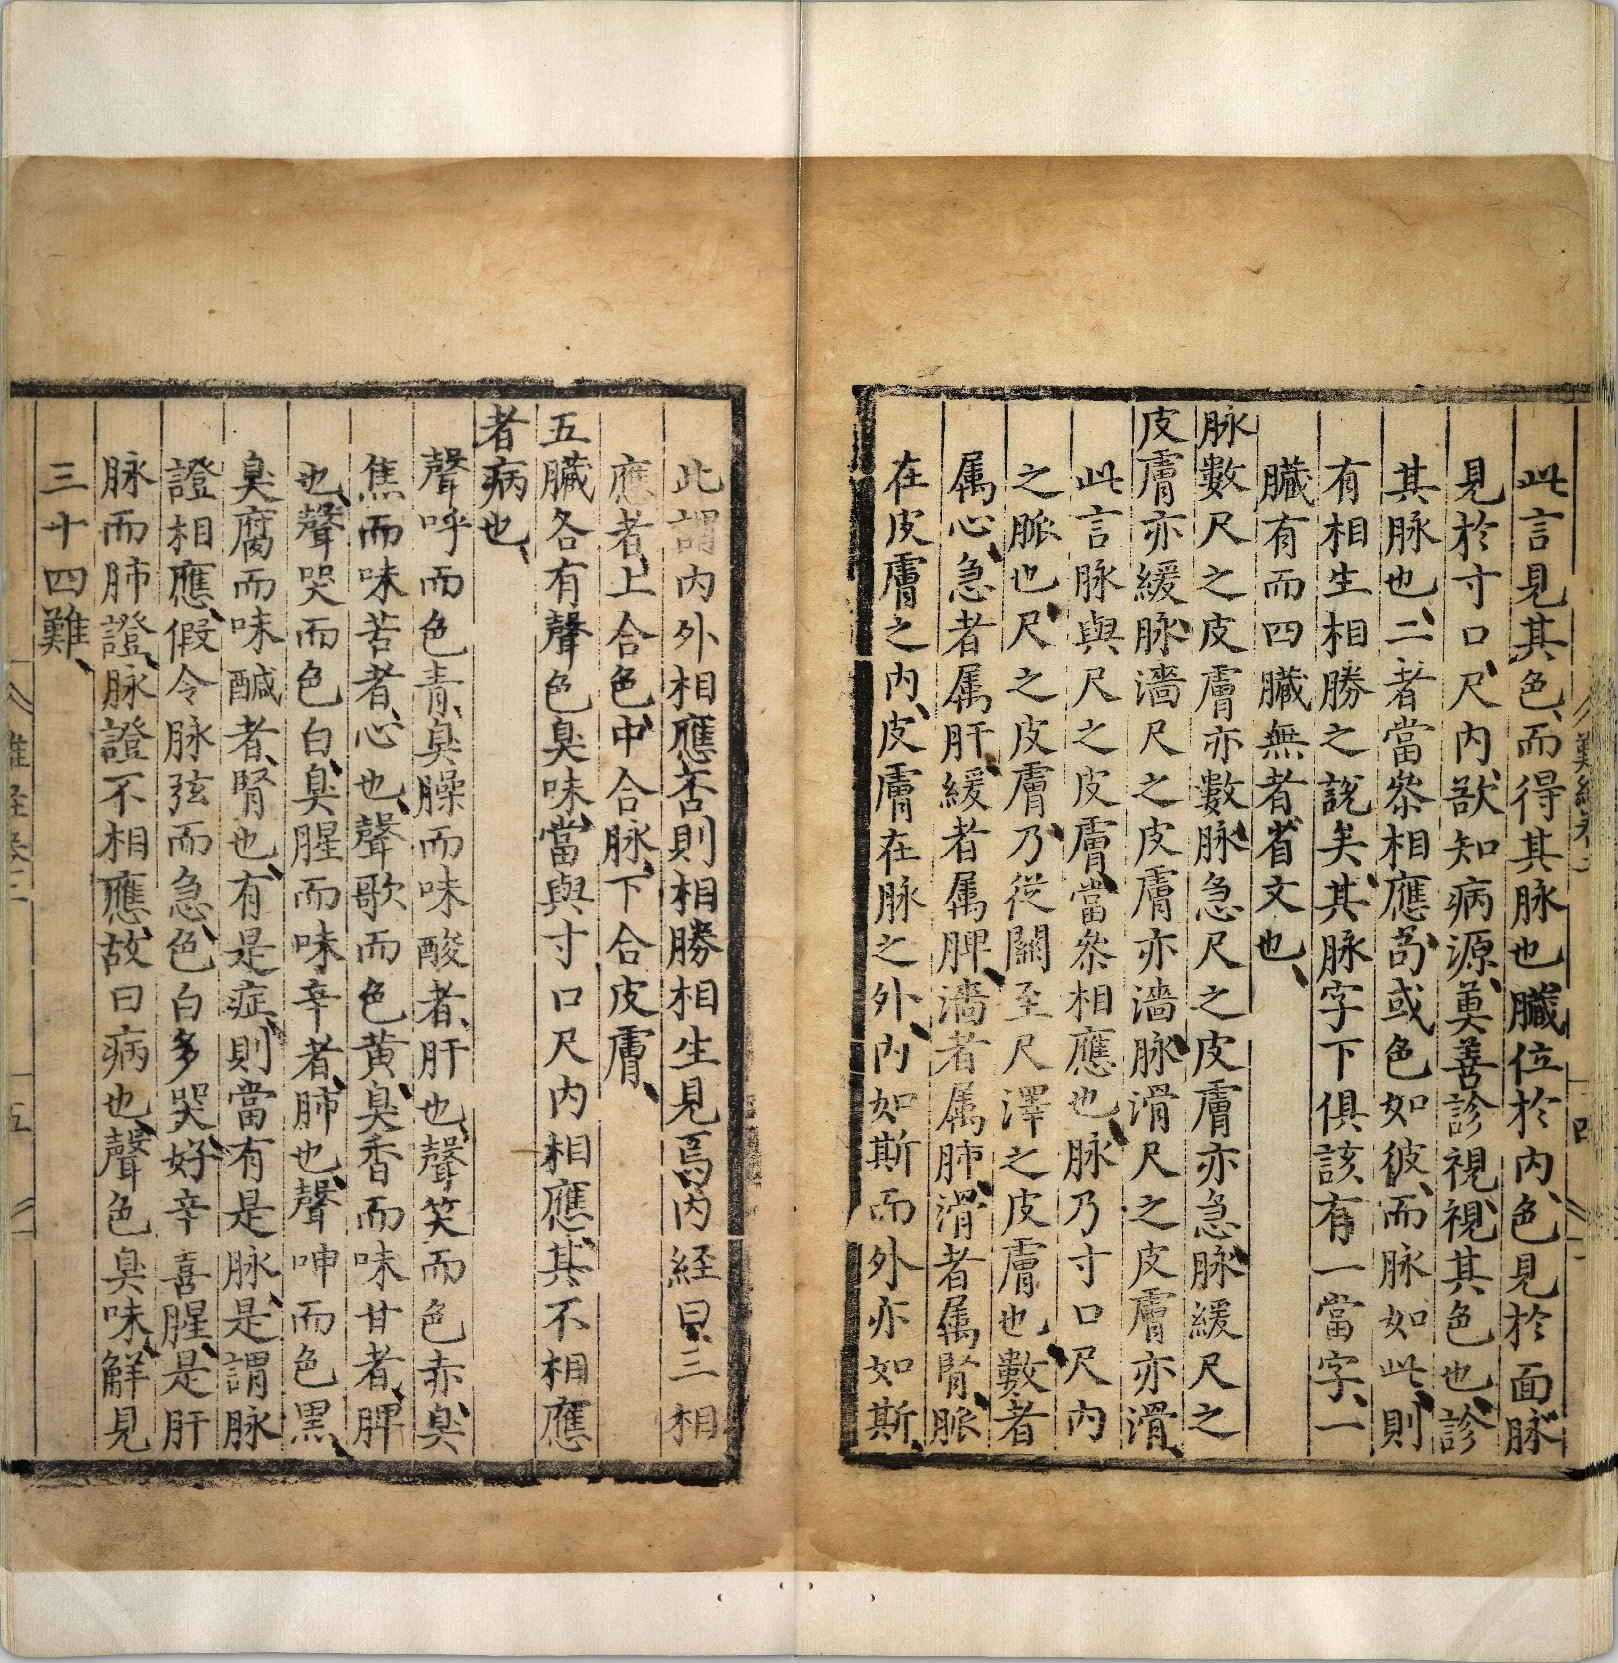 此言見其色、而得其脉也臓位於内、色見於面脉
見於寸口、尺内、欲知病源、奠善診視、視其色也、診
其脉也、二者當叅相應、苟或色如彼、而脉如此、則
有相生相勝之說矣、其脉字下俱該有一當字、一
臓有而四臓無者、省文也、
脉數尺之皮膚亦數、脉急尺之皮膚亦急、脉緩尺之
皮膚亦緩、脉濇尺之皮膚亦濇脉滑尺之皮膚亦滑、
此言脉與尺之皮膚、當叅相應也、脉乃寸口尺内
之脈也、尺之皮膚、乃從關至尺澤之皮膚也、數者
属心、急者属肝、緩者属脾、濇者属肺、滑者属腎、脈
在皮膚之内、皮膚在脉之外、内如斯而外亦如斯、
難經卷二
四
此謂内外相應否則相勝相生見焉、内経曰、三相
應者、上合色、中合脉、下合皮膚、
五臓各有聲色臭味、當與寸口尺内相應、其不相應
者病也、
聲呼而色青、臭臊而味酸者、肝也、聲笑而色赤、臭
焦而味苦者、心也、聲歌而色黄、臭香而味甘者、脾
也、聲哭而色白、臭腥而味辛者、肺也、聲呻而色黑、
臭腐而味醎者、腎也、有是症、則當有是脉、是謂脉
證相應、假令脉弦而急、色白多哭、好辛喜腥、是肝
脉而肺證、脉證不相應、故曰病也、聲色臭味、觧見
三十四難、
難経卷二
五